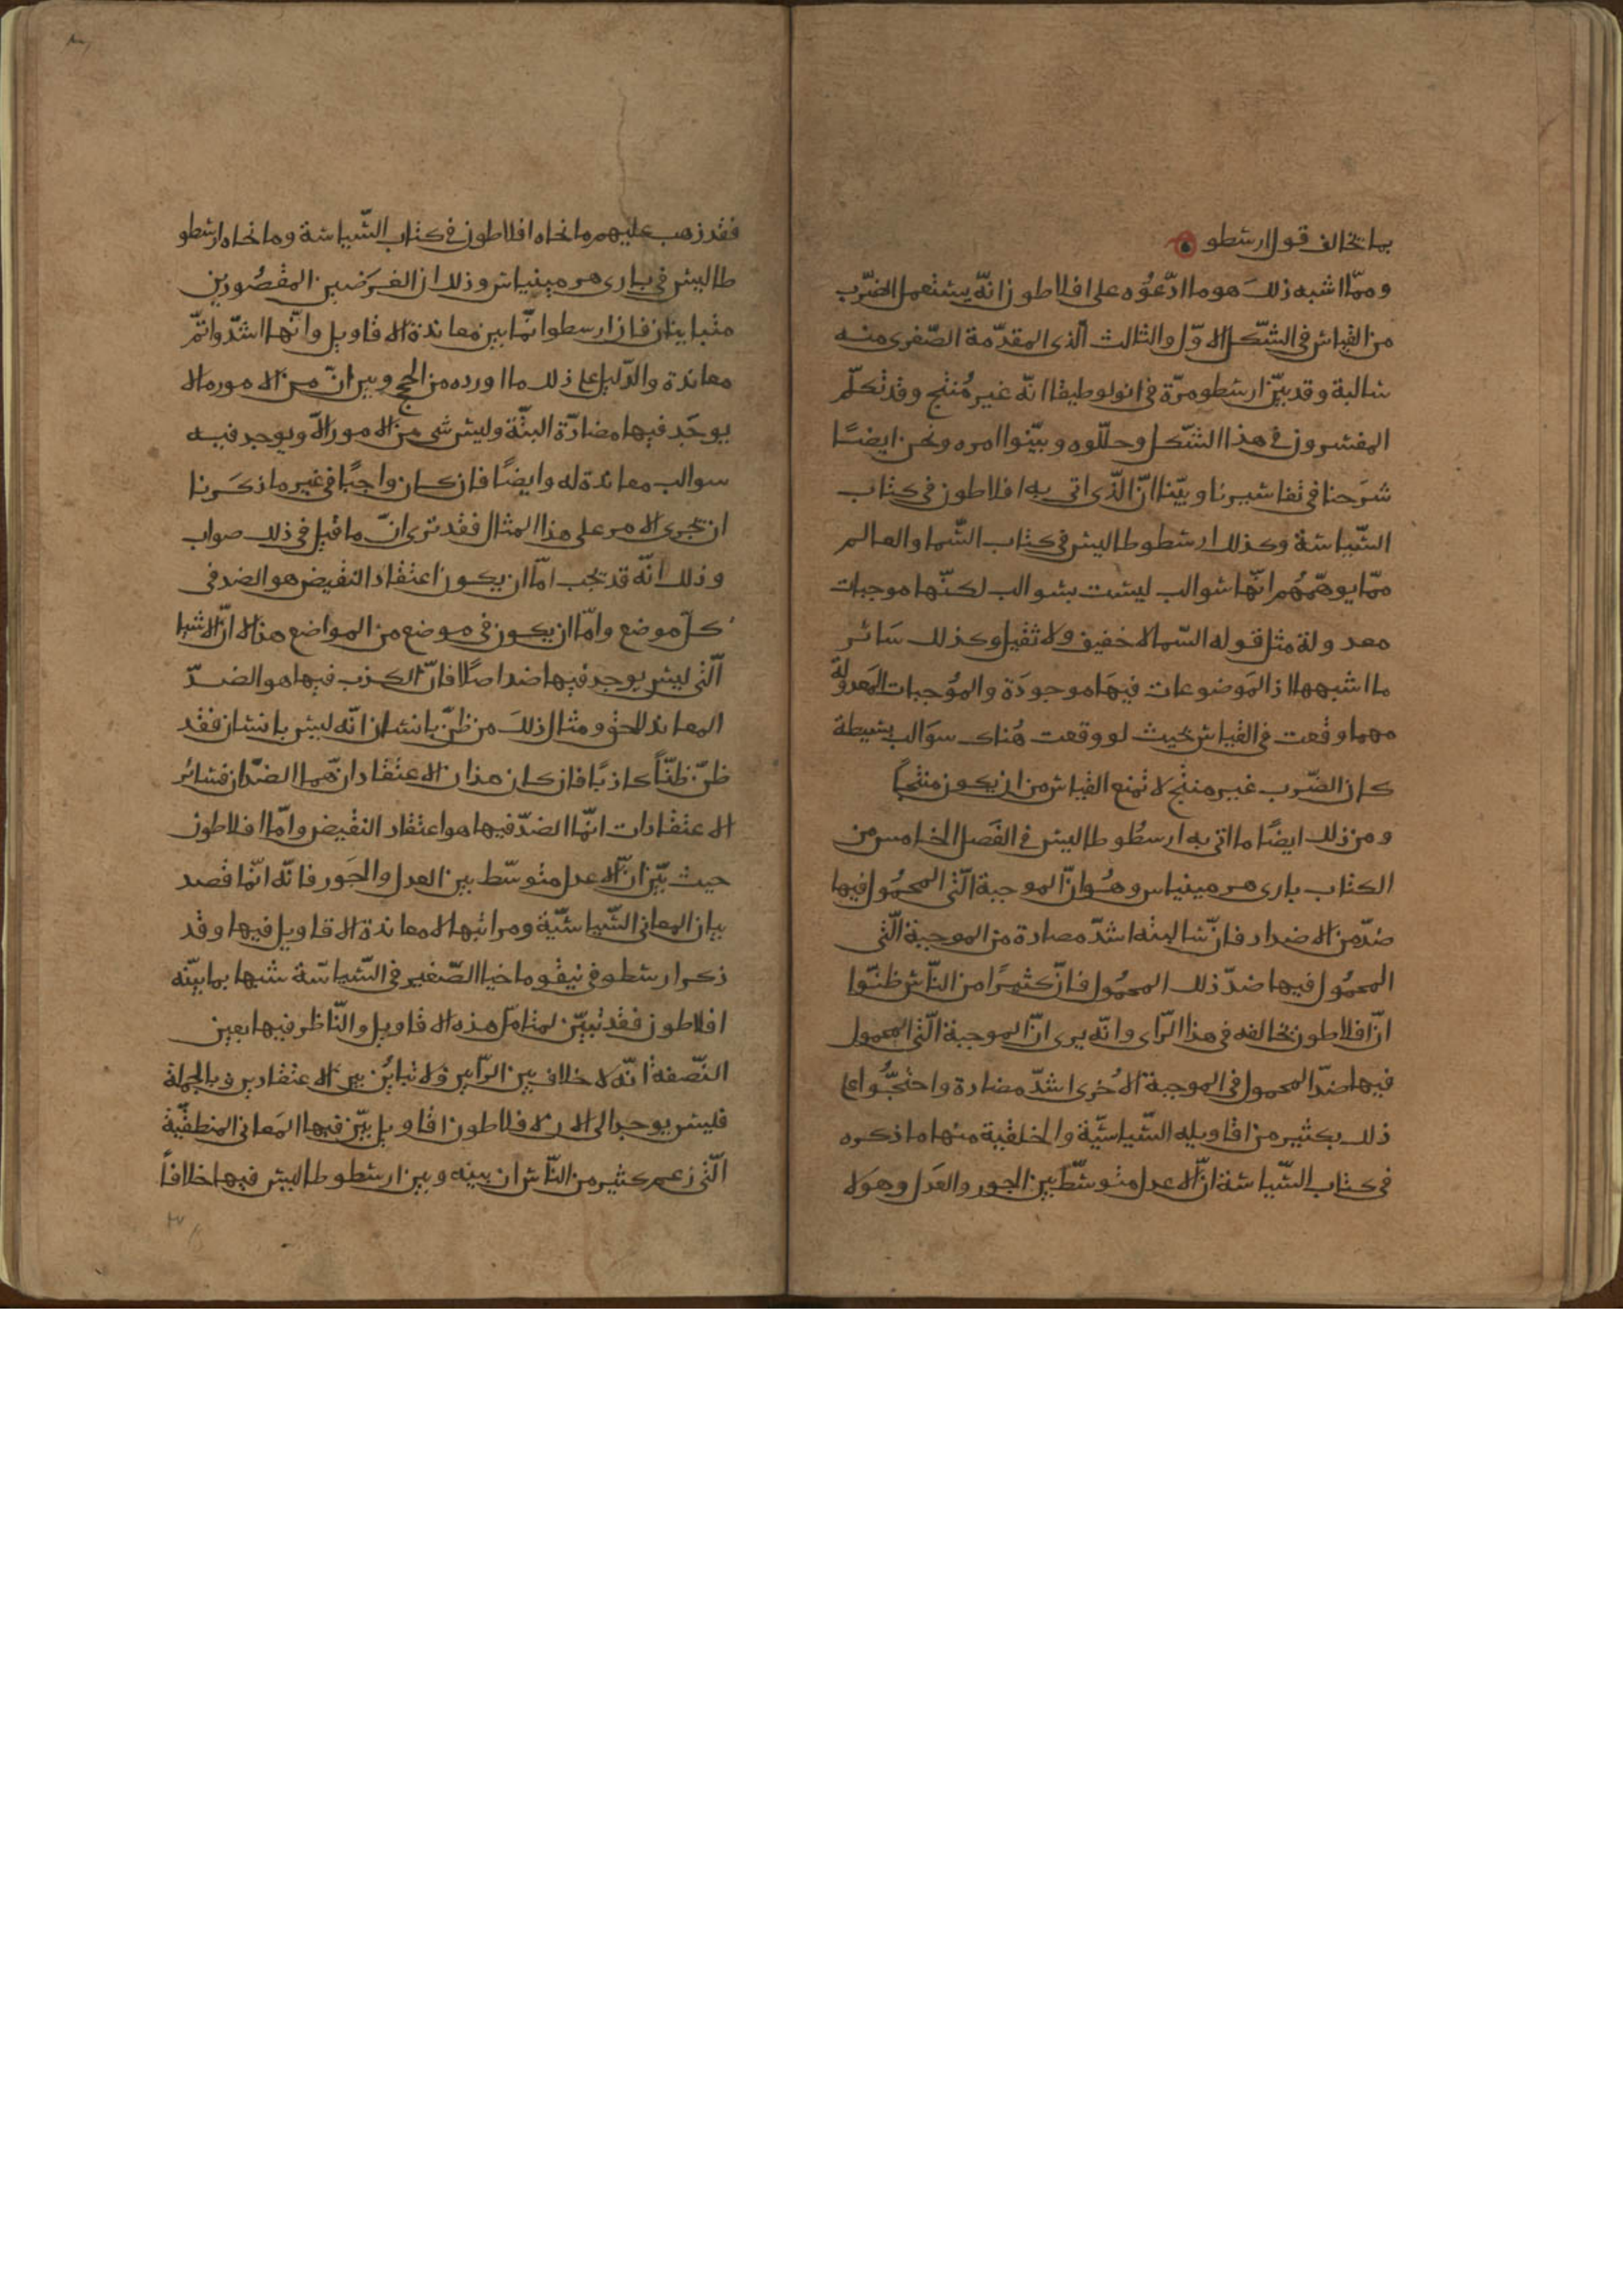 بما يخالف قول ارسطو
وممّا اشبه ذلك هو ما ادّعوُه على افلاطون انّه يستعمل الضّرب
من القياس فى الشّكل الاوّل والثالث الّذى المقدّمة الصّغرى منه
سالبة وقد بيّن ارسطو مرّة فى انولوطيقا انّه غير مُنتج وقد تكلّم
المفسرون فى هذا الشّكل وحلّلوه وبيّنوا امره ونحن ايضًا
شرَحنا فى تفاسيرنا وبيّنا انّ الّذى اتى به افلاطون فى كتاب
السّياسة وكذلك ارسطوطاليس فى كتاب السّما والعالم
ممّا يوهّمهُم انّها سوالب ليست بسوالب لكنّها موجبات
معدولة مثل قوله السّما لا خفيف ولا ثقيل وكذلك سَائر
ما اشبهها اذ المَوضوعات فيهَا موجودَة والموُجبات المَعدولة
مهما وقعت فى القياس بحيث لو وقعت هُناك سوَالب بسيطة
كان الضّرب غير منتج لا تمنع القياس من ان يكون منتجاً
ومن ذلك ايضًا ما اتى به ارسطُوطاليس فى الفَصل الخامس من
الكتاب بارى هرمينياس وهُو انّ الموجبة الّتى المحمُول فيها
ضدّ من الاضداد فانّ سالبته اشدّ مضادة من الموجبة الّتى
المحمُول فيها ضدّ ذلك المحمُول فانّ كثيرًا من النّاس ظنّوا
انّ افلاطون يخالفه فى هذا الرّاى وانّه يرى انّ الموجبة الّتى المحمول
فيها ضدّ المحمول فى الموجبة الاُخرى اشدّ مضادة واحتجُّوا على
ذلك بكثير من اقاويله السّياسيّة والخلقية منها ما ذكره
فى كتاب السّياسة انّ الاعدل متوسّط بين الجور والعَدل وهوَلا
فقد ذهب عليهم ما نحاه افلاطون فى كتاب السّياسة وما نحاه ارسطو
طاليس فى بارى هرمينياس وذلك ان الغَرَضين المقصُودين
متباينان فان ارسطو انّما بين معاندة الاقاويل وانّها اشدّ واتمّ
معاندة والدّليل على ذلك ما اورده من الحجج وبين انّ من الامور ما لا
يوجَد فيها مضادّة البتّة وليس شى من الامور الّا ويوجد فيه
سوالب معاندة له وايضًا فان كان واجبًا فى غير ما ذكَرنا
ان يجرى الامر على هذا المثال فقد نرى انّ ما قيل فى ذلك صواب
وذلك انّه قد يجب امّا ان يكون اعتقاد النقيض هو الضد فى
كلّ موضع وامّا ان يكون فى موضع من المواضع هذا الا انّ الاشيا
الّتى ليس يوجد فيها ضد اصلًا فانّ الكذب فيها هو الضدّ
المعاند للحق ومثال ذلكَ من ظنّ بانسان انّه ليس بانسان فقد
ظنّ ظنّاً كاذبًا فان كان هذان الاعتقادان هما الضدّان فسائر
الاعتقادات انّما الضدّ فيها هو اعتقاد النقيض وامّا افلاطون
حيث بيّن انّ الاعدل متوسّط بين العدل والجَور فانّه انّما قصد
بيان المعانى السّياسيّة ومراتبها لا معاندة الاقاويل فيها وقد
ذكر ارسطو فى نيقوماخيا الصّغير فى السّياسَة شبيها بما بيّنه
افلاطون فقد تبيّن لمتامّل هذه الاقاويل والنّاظر فيها بعين
النّصفة انّه لا خلاف بين الرّايين ولا تبايُن بين الاعتقادين وبالجملة
فليس يوجد الى الان لافلاطون اقاويل بيّن فيها المَعانى المنطقيّة
الّتى زعم كثير من النّاس ان بينه وبين ارسطوطاليس فيها خلافاً